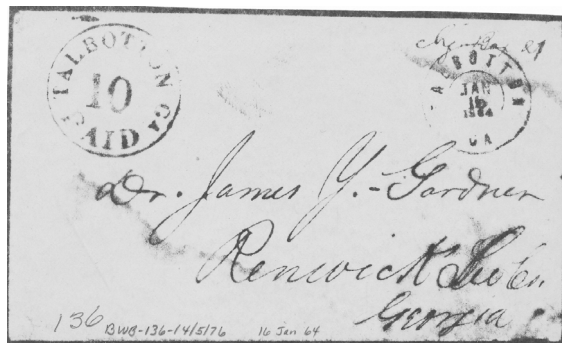 TALBOTTON GA
10
PAID
TALBOTTON
JAN
16
1864
GA
Dr. James Y. Gardner
Renwick Lee Co.
Georgia
136
BWB-136-14/5/76 16 Jan 64